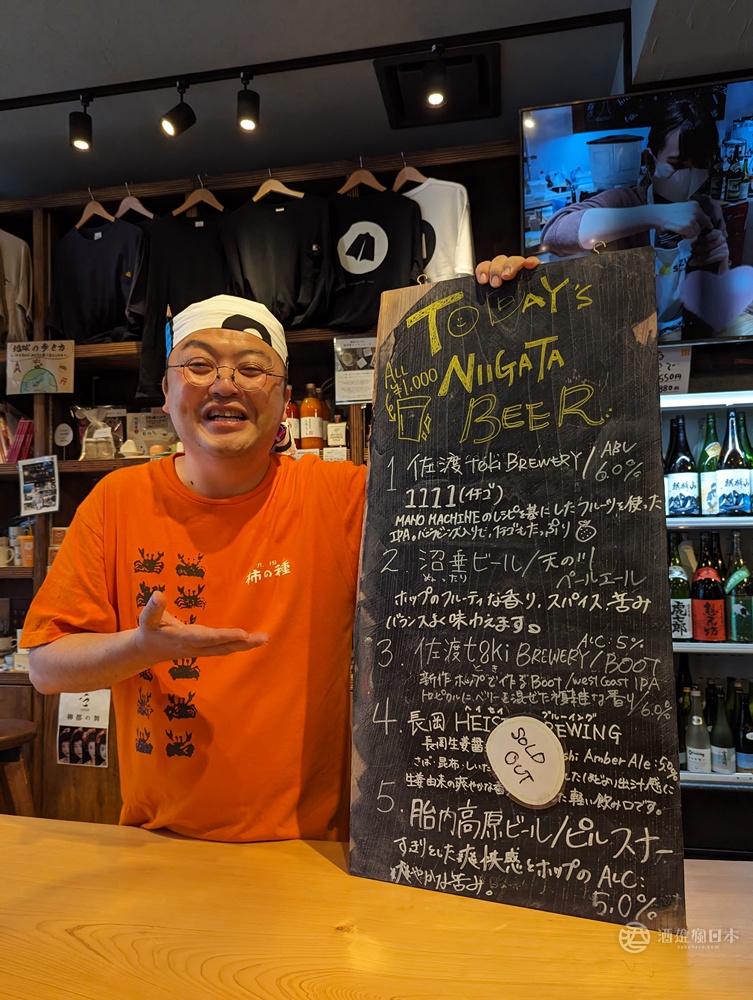 TODAY's
NIIGATA
BEER
ALL
¥1,000
1 佐渡 t8ki BREWERY / ABV 6.0%
1111 (イチゴ)
MAHO MACHINEのレシピを基にしたフルーツを使った
IPA。バニラビーンズ入りで、イチゴもたっぷり
2. 沼垂ビール/天の川
ぬったり
ペールエール
ホップのフルーティな香り、スパイス、苦み
バランスよく味わえます。
3. 佐渡 t8ki BREWERY/BOOT
新作ホップで作るBoot/West Coast IPA
トロピカルにベリーを混ぜた
な香り/6.0%
4. 長岡 HEIS
EWING
ブルーイング
長岡生姜醤
shi Amber Ale: 5.0%
さば・昆布・しいた
出汁感に
生姜由来の爽やかな香
軽い飲み口です。
SOLD
OUT
5. 胎内高原ビール/ピルスナー
すっきりとした爽快感とホップの ALC:
爽やかな苦み。 5.0%
ALC: 5%
柿の種
地球の歩き方
柳都の舞
550円
880円
麒麟山
麒麟山
麒麟山
酒雄瘋日本